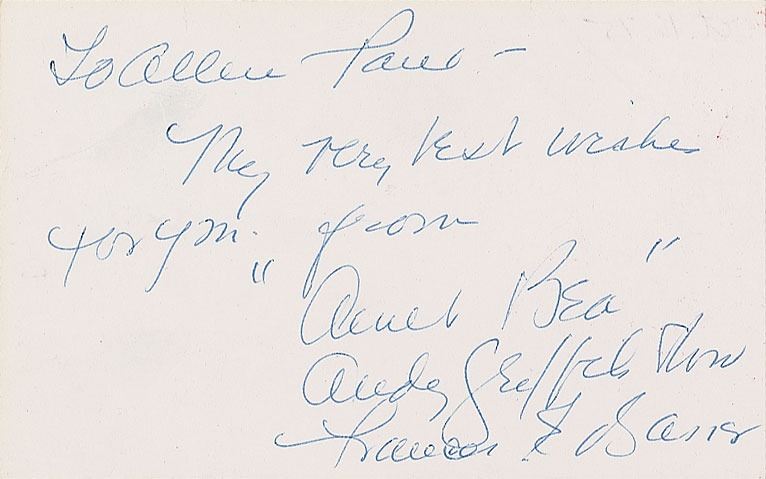 To Allen Pane -
My very best wishes
for you. from
"Aunt Bea"
Andy Griffith Show
Frances E Bavier